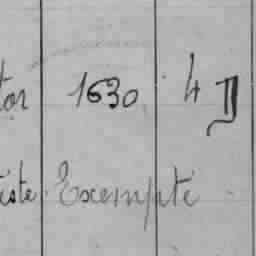 tor 1630 4 D
iste Exempté